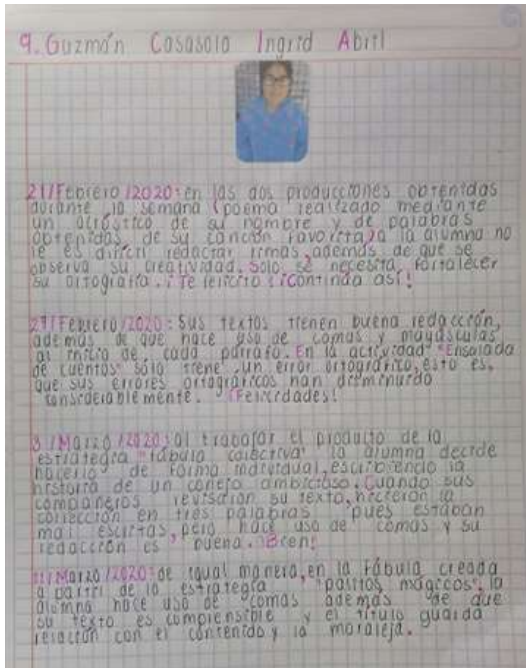 9. Guzmán Casasola Ingrid Abril
21/Febrero/2020: en las dos producciones obtenidas
durante la semana (poema realizado mediante
un acróstico de su nombre y de palabras
obtenidas de su canción favorita) a la alumna no
le es difícil redactar rimas, además de que se
observa su creatividad. Solo se necesita fortalecer
su ortografía. ¡Te felicito! ¡Continúa así!
27/Febrero/2020: Sus textos tienen buena redacción,
además de que hace uso de comas y mayúsculas
al inicio de cada párrafo. En la actividad "Ensalada
de cuentos" sólo tiene un error ortográfico, esto es,
que sus errores ortográficos han disminuido
considerablemente. ¡Felicidades!
/Marzo/2020: al trabajar el producto de la
estrategia "fábula colectiva" la alumna decide
hacerlo de forma individual, escribiendo la
historia de un conejo ambicioso. Cuando sus
compañeros revisaron su texto, hicieron la
corrección en tres palabras pues estaban
mal escritas, pero hace uso de comas y su
redacción es buena. ¡Bien!
11/Marzo/2020: de igual manera, en la fábula creada
a partir de la estrategia "palitos mágicos", la
alumna hace uso de comas además de que
su texto es comprensible y el título guarda
relación con el contenido y la moraleja.